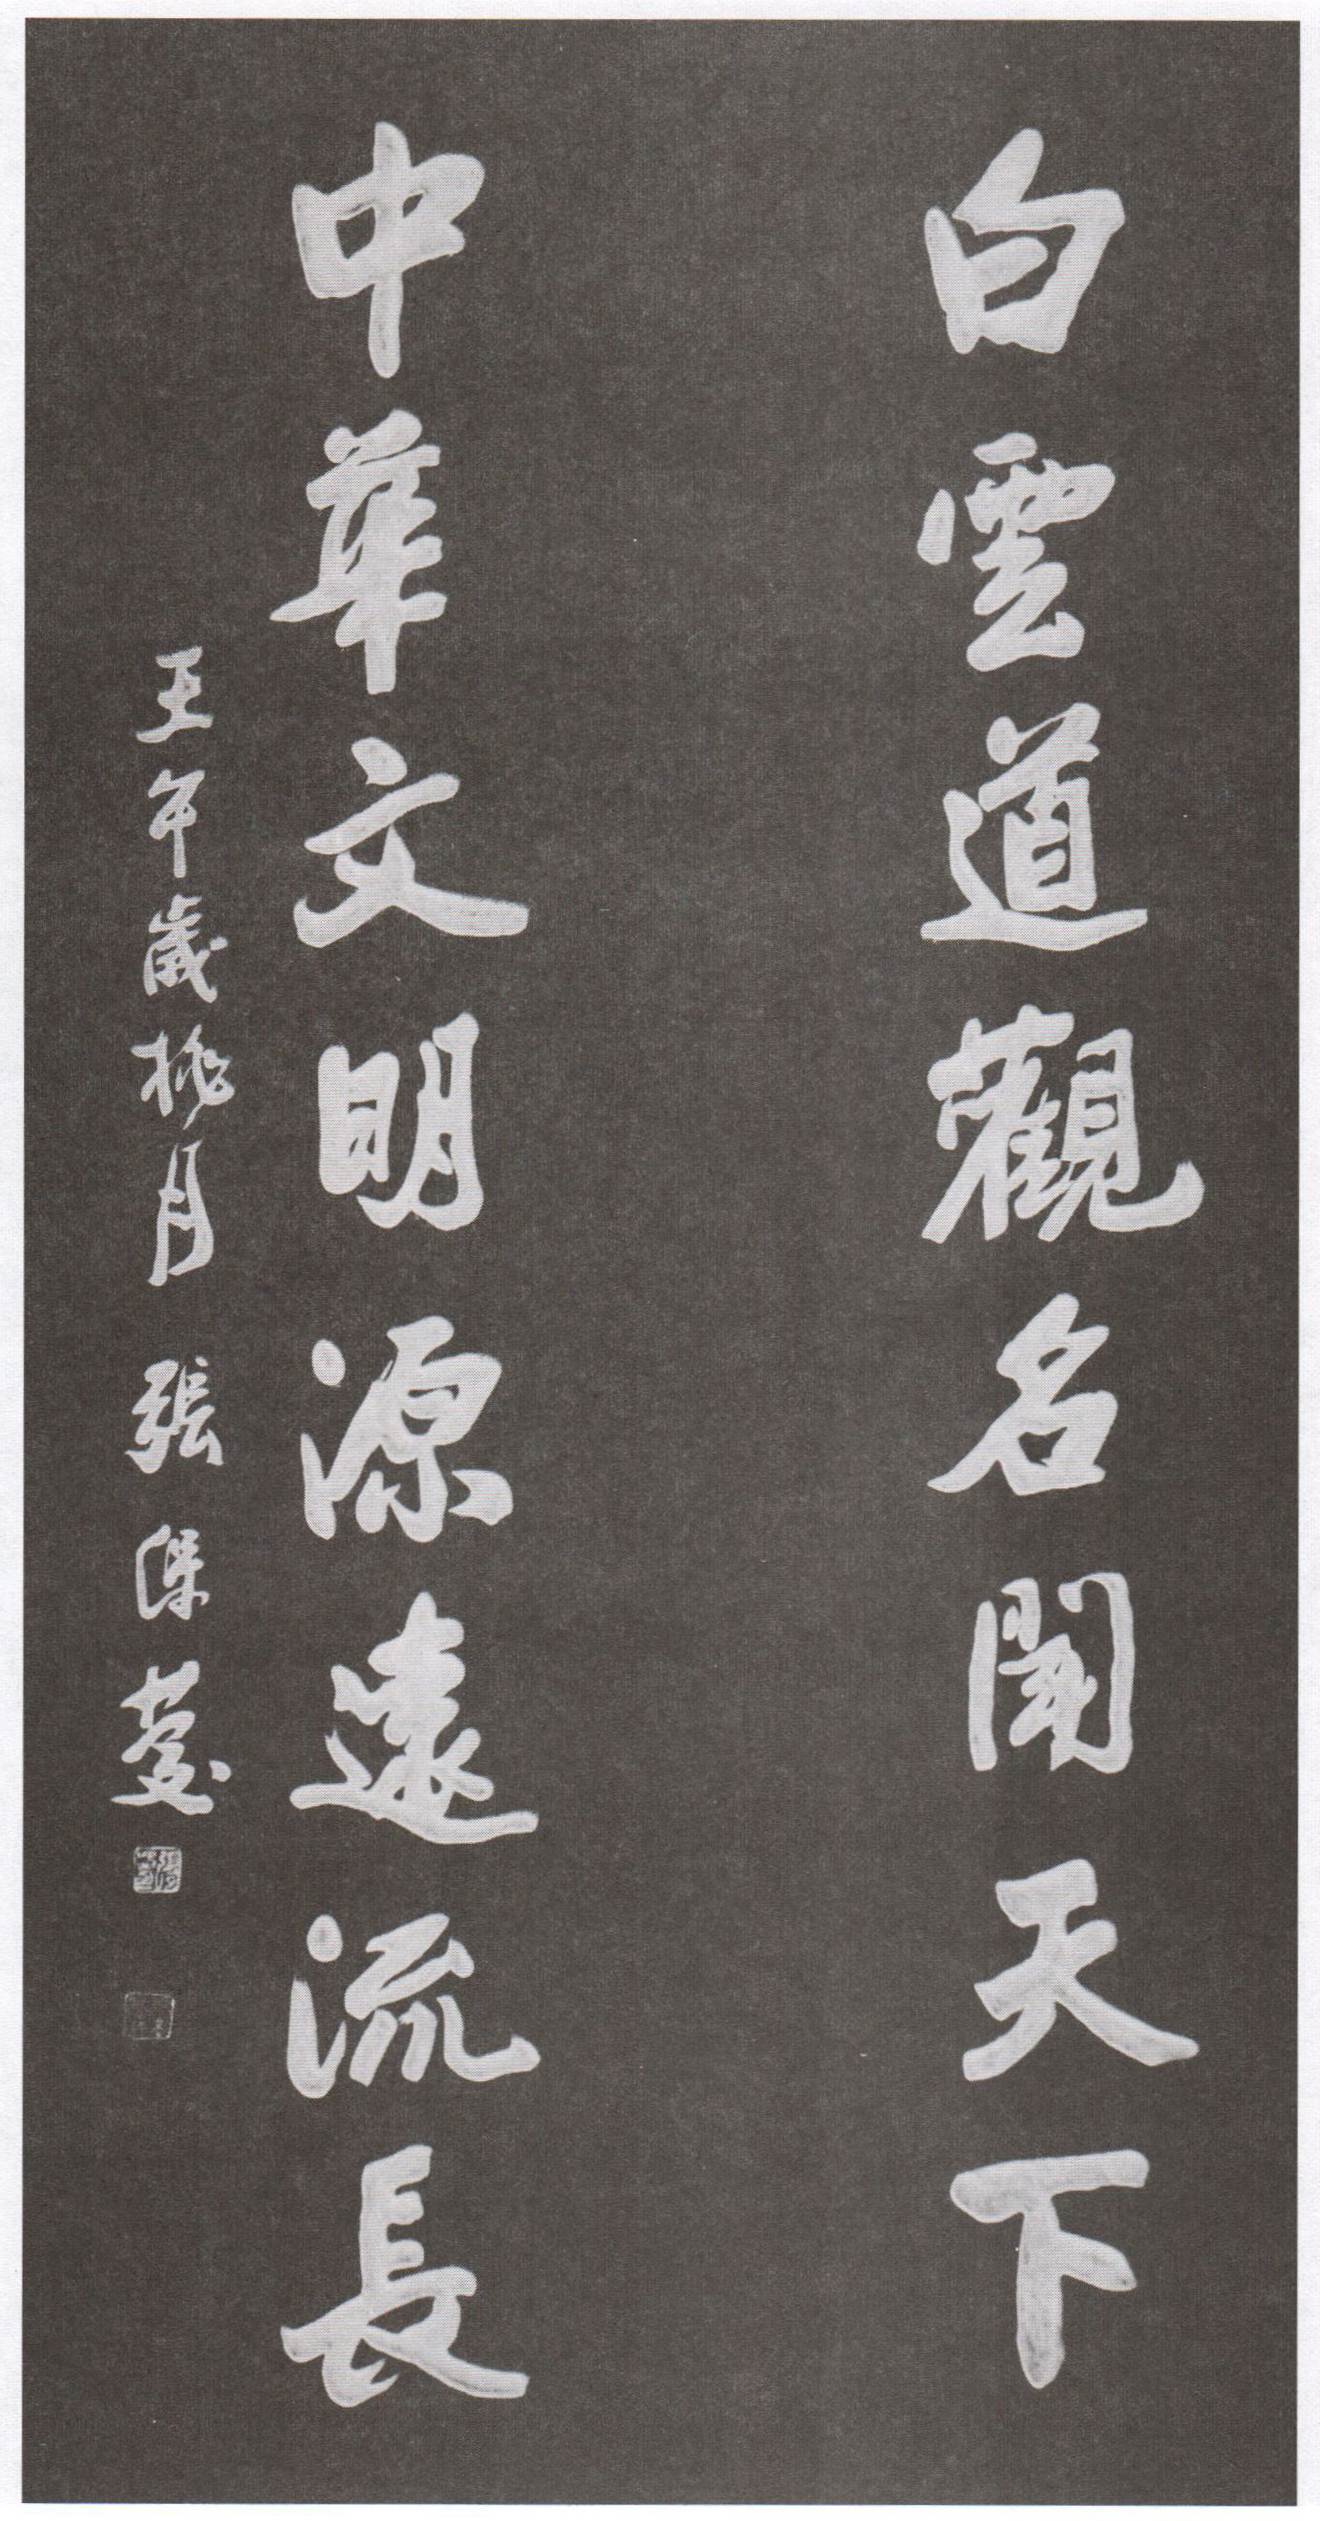 白雲道觀名聞天下
中華文明源遠流長
壬午歲桃月 張保慶